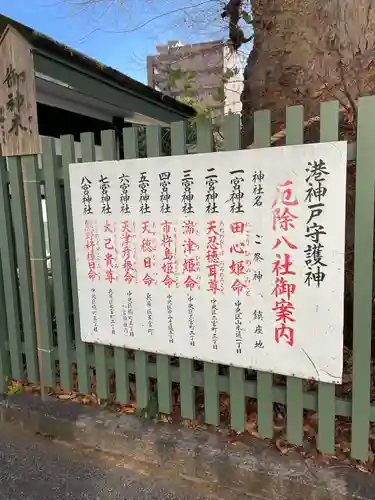 港神戸守護神
厄除八社御案内
神社名 ご祭神 鎮座地
一宮神社 田心姫命 中央区山本通一丁目
二宮神社 天忍穂耳尊 中央区二宮町三丁目
三宮神社 湍津姫命 中央区三宮町二丁目
四宮神社 市杵島姫命 中央区中山手通五丁目
五宮神社 天穂日命 兵庫区五宮町
六宮神社 天津彦根命 中央区楠町三丁目
八宮神社内
七宮神社 大己貴尊 兵庫区七宮町二丁目
八宮神社 熊野杼樟日命 中央区楠町三丁目
御神水